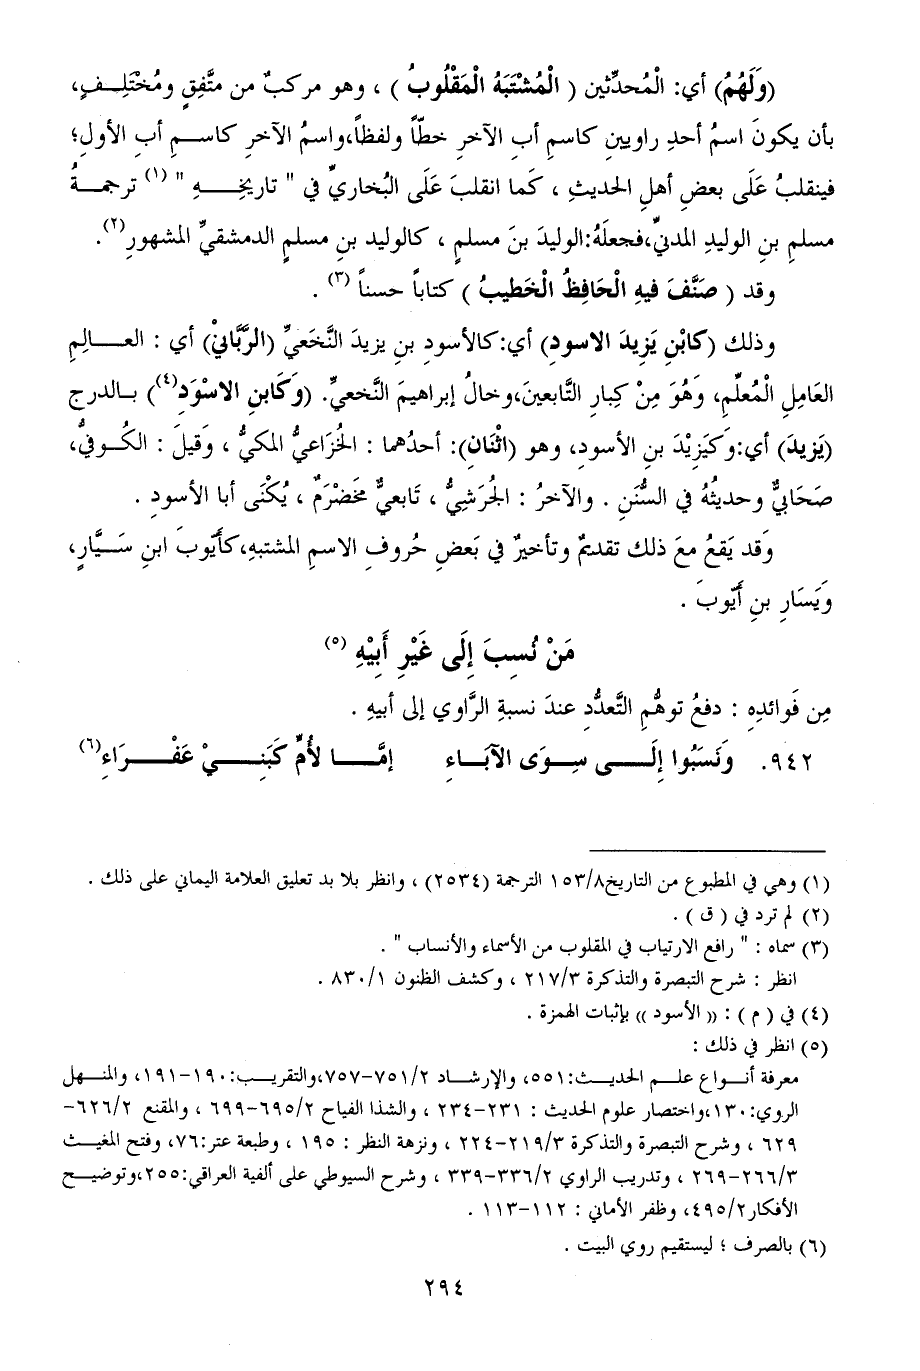 (وَلَهُمُ) أي: الْمُحدِّثين ( الْمُشْتَبَهُ الْمَقْلُوبُ ) ، وهو مركبٌ من متَّفِقٍ ومُخْتَلِفٍ،
بأن يكونَ اسمُ أحدِ راويينِ كاسمِ أبِ الآخرِ خطّاً ولفظاً،واسمُ الآخرِ كاسمِ أبِ الأولِ؛
فينقلبُ عَلَى بعضِ أهلِ الحديثِ ، كَما انقلبَ عَلَى البُخاريِّ في " تاريخِهِ " (١) ترجمةُ
مسلمِ بنِ الوليدِ المدنيِّ،فجعلَهُ:الوليدَ بنَ مسلمٍ ، كالوليد بنِ مسلمٍ الدمشقيِّ المشهورِ(٢).
وقد ( صَنَّفَ فيهِ الْحَافِظُ الْخَطيبُ ) كتاباً حسناً (٣) .
وذلك (كابْنِ يَزِيدَ الاسودِ) أي:كالأسودِ بنِ يزيدَ النَّخَعيِّ (الرَّبَّانيْ) أي : العالِمِ
العَامِلِ الْمُعلِّمِ، وَهُوَ مِنْ كِبارِ التَّابعينَ،وخالُ إبراهيمَ النَّخعيِّ. (وَكَابنِ الاسْوَدِ(٤)) بالدرج
(يَزيدَ) أي:وَكَيَزِيْدَ بنِ الأسودِ، وهو (اثْنَانِ): أحدُهما : الخُزاعيُّ المكيُّ ، وَقيلَ : الكُوفيُّ،
صَحَابيٌّ وحديثُهُ في السُّنَنِ . والآخرُ : الجُرَشِيُّ ، تَابعيٌّ مُخَضْرَمٌ ، يُكْنَى أبا الأسودِ .
وَقد يَقعُ معَ ذلك تقديمٌ وتأخيرٌ في بَعضِ حُروفِ الاسمِ المشتبهِ،كأَيّوبَ ابنِ سَيَّارٍ،
ويَسَارِ بنِ أيّوبَ .
مَنْ نُسِبَ إِلَى غَيْرِ أَبِيْهِ (٥)
مِن فَوائدِهِ : دفعُ توهُّمِ التَّعدُّدِ عندَ نسبةِ الرَّاوي إلى أبيهِ .
٩٤٢. وَنَسَبُوا إِلَى سِوَى الآبَاءِ إمَّا لأُمٍّ كَبَنِيْ عَفْرَاءِ(٦)
(١) وهي في المطبوع من التاريخ١٥٣/٨ الترجمة (٢٥٣٤) ، وانظر بلا بد تعليق العلامة اليماني على ذلك .
(٢) لم ترد في ( ق ) .
(٣) سماه : " رافع الارتياب في المقلوب من الأسماء والأنساب " .
انظر : شرح التبصرة والتذكرة ٢١٧/٣ ، وكشف الظنون ٨٣٠/١ .
(٤) في ( م ) : (( الأسود )) بإثبات الهمزة .
(٥) انظر في ذلك :
معرفة أنواع علم الحديث:٥٥١، والإرشاد ٧٥١/٢-٧٥٧،والتقريب:١٩٠-١٩١، والمنهل
الروي:١٣٠،واختصار علوم الحديث : ٢٣١-٢٣٤ ، والشذا الفياح ٦٩٥/٢-٦٩٩ ، والمقنع ٦٢٦/٢-
٦٢٩ ، وشرح التبصرة والتذكرة ٢١٩/٣-٢٢٤ ، ونزهة النظر : ١٩٥ ، وطبعة عتر:٧٦، وفتح المغيث
٢٦٦/٣-٢٦٩ ، وتدريب الراوي ٣٣٦/٢-٣٣٩ ، وشرح السيوطي على ألفية العراقي:٢٥٥،وتوضيح
الأفكار٤٩٥/٢، وظفر الأماني : ١١٢-١١٣ .
(٦) بالصرف ؛ ليستقيم روي البيت .
٢٩٤